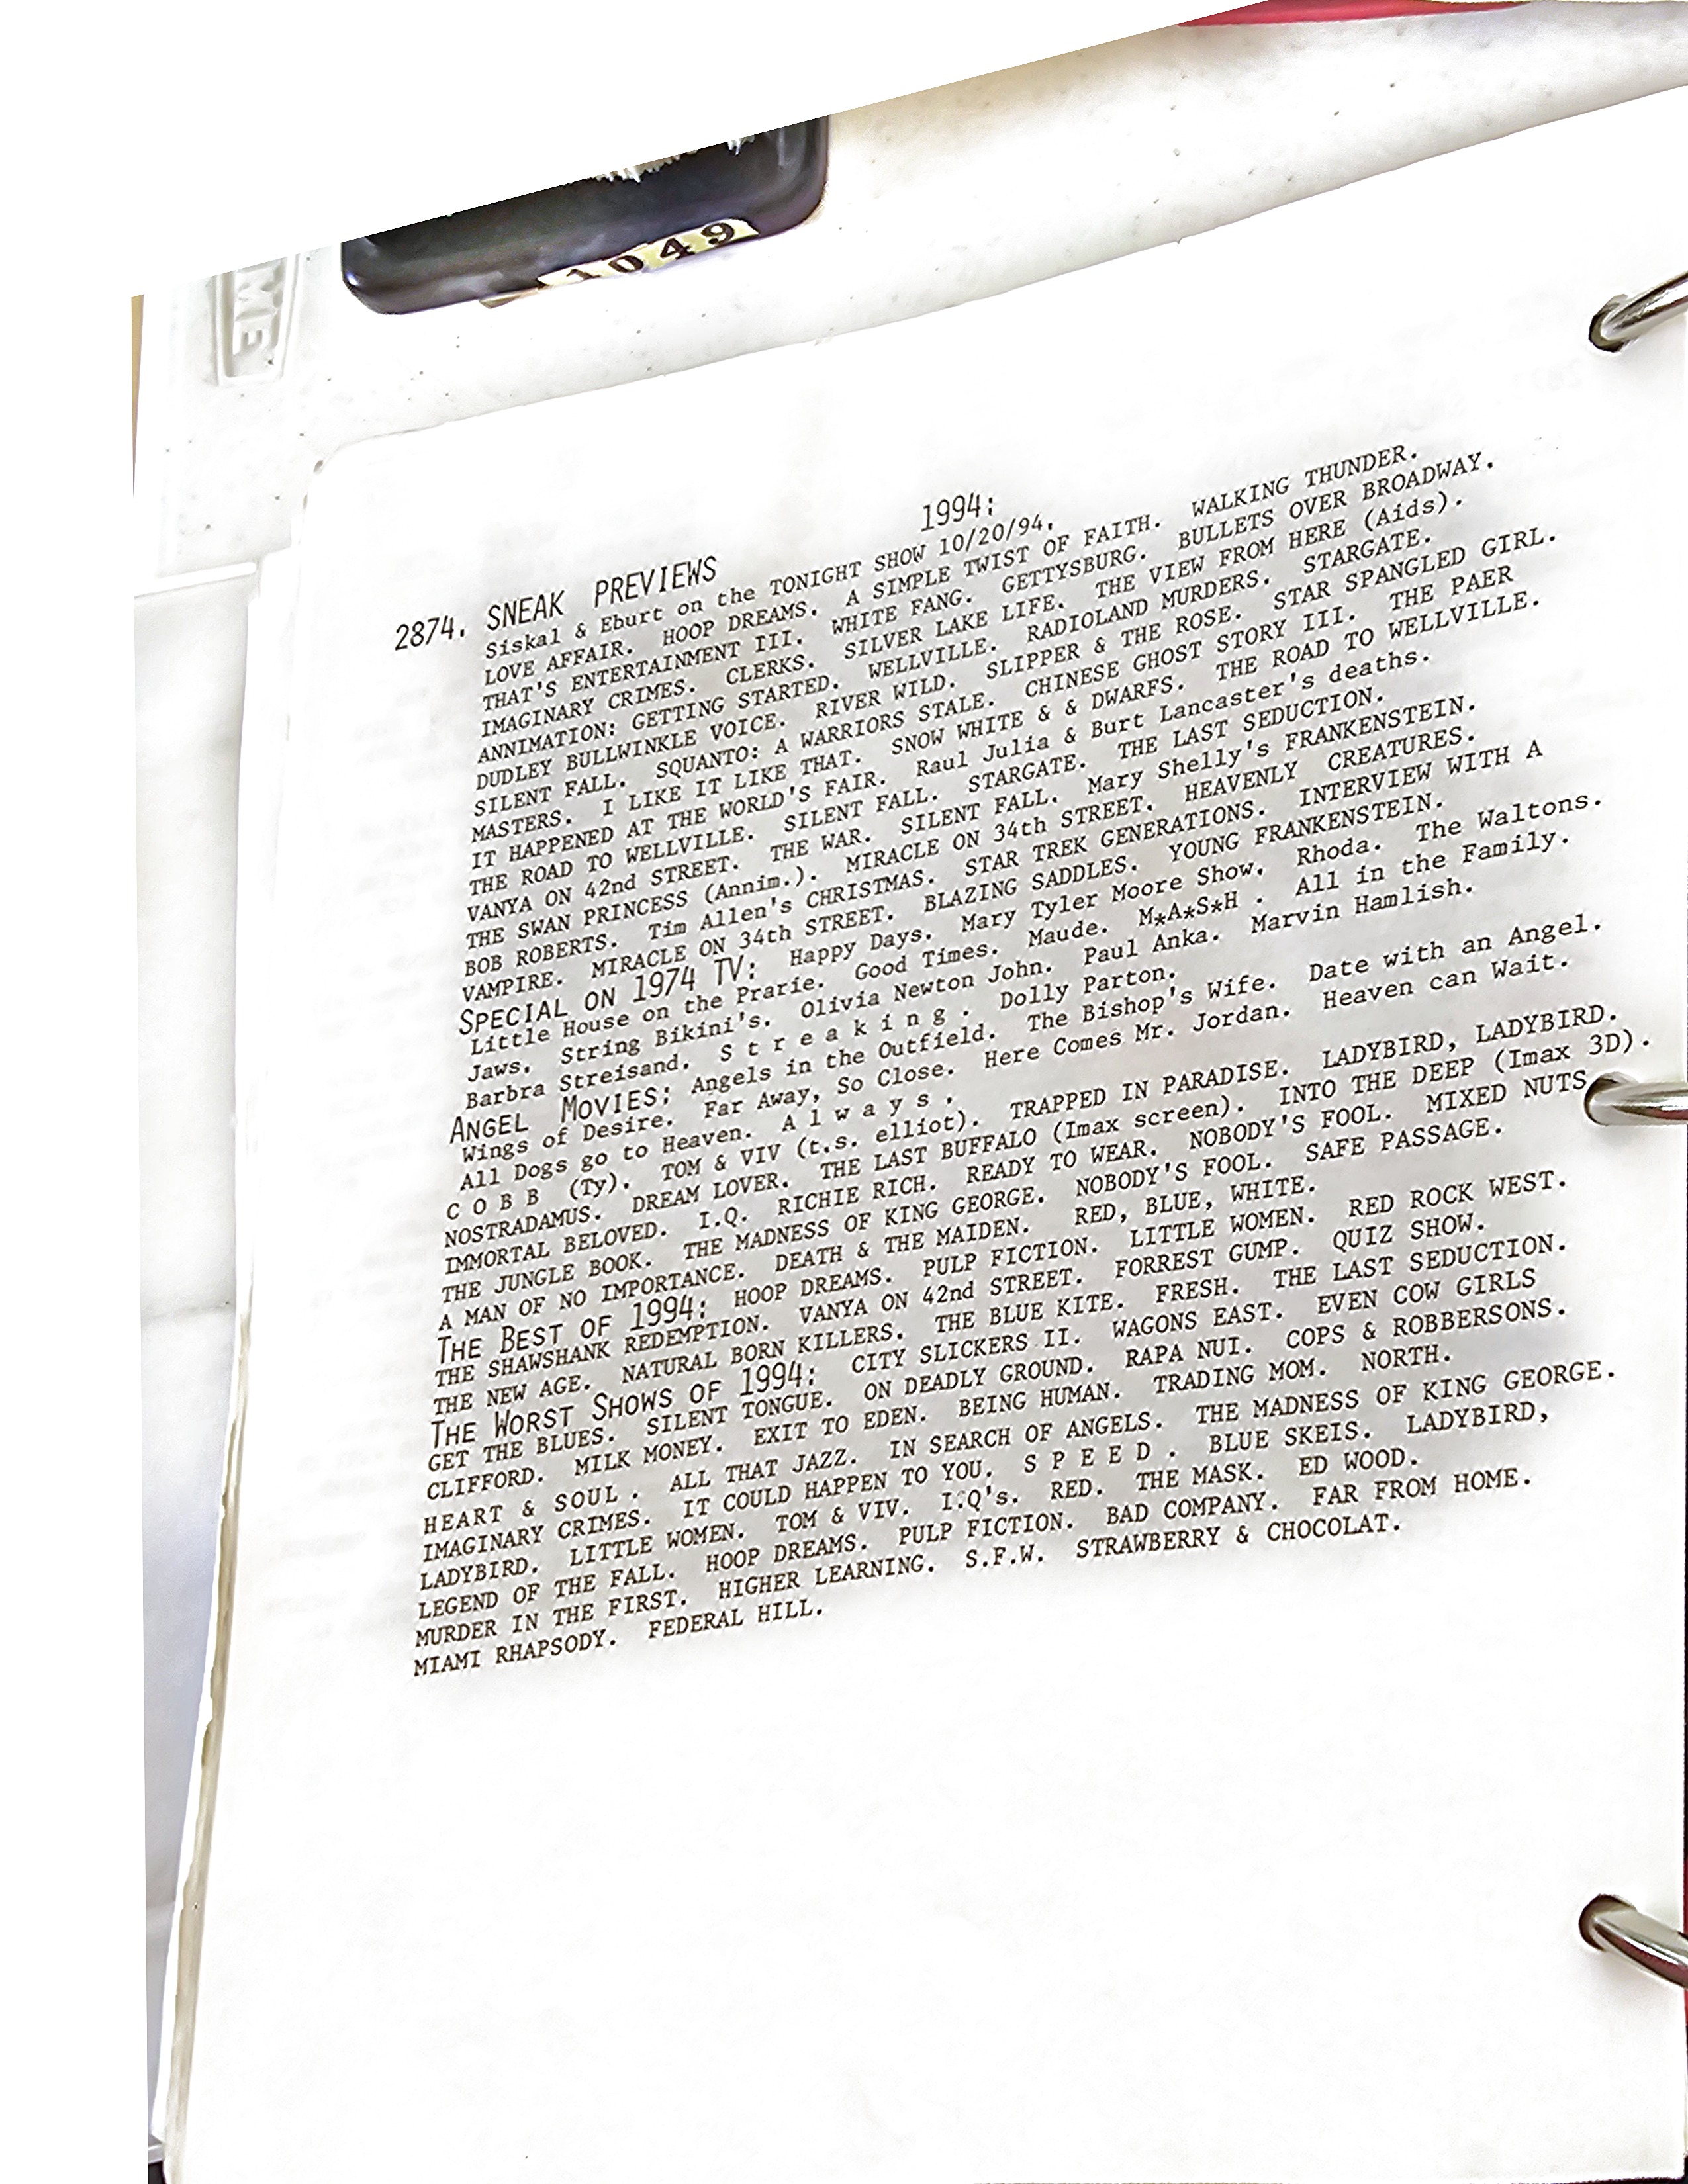 1049
ME
1994:
2874. SNEAK PREVIEWS
Siskal & Eburt on the TONIGHT SHOW 10/20/94.
LOVE AFFAIR. HOOP DREAMS. A SIMPLE TWIST OF FAITH. WALKING THUNDER.
THAT'S ENTERTAINMENT III. WHITE FANG. GETTYSBURG. BULLETS OVER BROADWAY.
IMAGINARY CRIMES. CLERKS. SILVER LAKE LIFE. THE VIEW FROM HERE (Aids).
ANNIMATION: GETTING STARTED. WELLVILLE. RADIOLAND MURDERS. STARGATE.
DUDLEY BULLWINKLE VOICE. RIVER WILD. SLIPPER & THE ROSE. STAR SPANGLED GIRL.
SILENT FALL. SQUANTO: A WARRIORS STALE. CHINESE GHOST STORY III. THE PAER
MASTERS. I LIKE IT LIKE THAT. SNOW WHITE & & DWARFS. THE ROAD TO WELLVILLE.
IT HAPPENED AT THE WORLD'S FAIR. Raul Julia & Burt Lancaster's deaths.
THE ROAD TO WELLVILLE. SILENT FALL. STARGATE. THE LAST SEDUCTION.
VANYA ON 42nd STREET. THE WAR. SILENT FALL. Mary Shelly's FRANKENSTEIN.
THE SWAN PRINCESS (Annim.). MIRACLE ON 34th STREET. HEAVENLY CREATURES.
BOB ROBERTS. Tim Allen's CHRISTMAS. STAR TREK GENERATIONS. INTERVIEW WITH A
VAMPIRE. MIRACLE ON 34th STREET. BLAZING SADDLES. YOUNG FRANKENSTEIN.
SPECIAL ON 1974 TV: Happy Days. Mary Tyler Moore Show. Rhoda. The Waltons.
Little House on the Prarie. Good Times. Maude. M*A*S*H . All in the Family.
Jaws. String Bikini's. Olivia Newton John. Paul Anka. Marvin Hamlish.
Barbra Streisand. S t r e a k i n g . Dolly Parton.
ANGEL MOVIES: Angels in the Outfield. The Bishop's Wife. Date with an Angel.
Wings of Desire. Far Away, So Close. Here Comes Mr. Jordan. Heaven can Wait.
All Dogs go to Heaven. A l w a y s .
C O B B (Ty). TOM & VIV (t.s. elliot). TRAPPED IN PARADISE. LADYBIRD, LADYBIRD.
NOSTRADAMUS. DREAM LOVER. THE LAST BUFFALO (Imax screen). INTO THE DEEP (Imax 3D).
IMMORTAL BELOVED. I.Q. RICHIE RICH. READY TO WEAR. NOBODY'S FOOL. MIXED NUTS
THE JUNGLE BOOK. THE MADNESS OF KING GEORGE. NOBODY'S FOOL. SAFE PASSAGE.
A MAN OF NO IMPORTANCE. DEATH & THE MAIDEN. RED, BLUE, WHITE.
THE BEST OF 1994: HOOP DREAMS. PULP FICTION. LITTLE WOMEN. RED ROCK WEST.
THE SHAWSHANK REDEMPTION. VANYA ON 42nd STREET. FORREST GUMP. QUIZ SHOW.
THE NEW AGE. NATURAL BORN KILLERS. THE BLUE KITE. FRESH. THE LAST SEDUCTION.
THE WORST SHOWS OF 1994: CITY SLICKERS II. WAGONS EAST. EVEN COW GIRLS
GET THE BLUES. SILENT TONGUE. ON DEADLY GROUND. RAPA NUI. COPS & ROBBERSONS.
CLIFFORD. MILK MONEY. EXIT TO EDEN. BEING HUMAN. TRADING MOM. NORTH.
HEART & SOUL . ALL THAT JAZZ. IN SEARCH OF ANGELS. THE MADNESS OF KING GEORGE.
IMAGINARY CRIMES. IT COULD HAPPEN TO YOU. S P E E D . BLUE SKEIS. LADYBIRD,
LADYBIRD. LITTLE WOMEN. TOM & VIV. I.Q's. RED. THE MASK. ED WOOD.
LEGEND OF THE FALL. HOOP DREAMS. PULP FICTION. BAD COMPANY. FAR FROM HOME.
MURDER IN THE FIRST. HIGHER LEARNING. S.F.W. STRAWBERRY & CHOCOLAT.
MIAMI RHAPSODY. FEDERAL HILL.